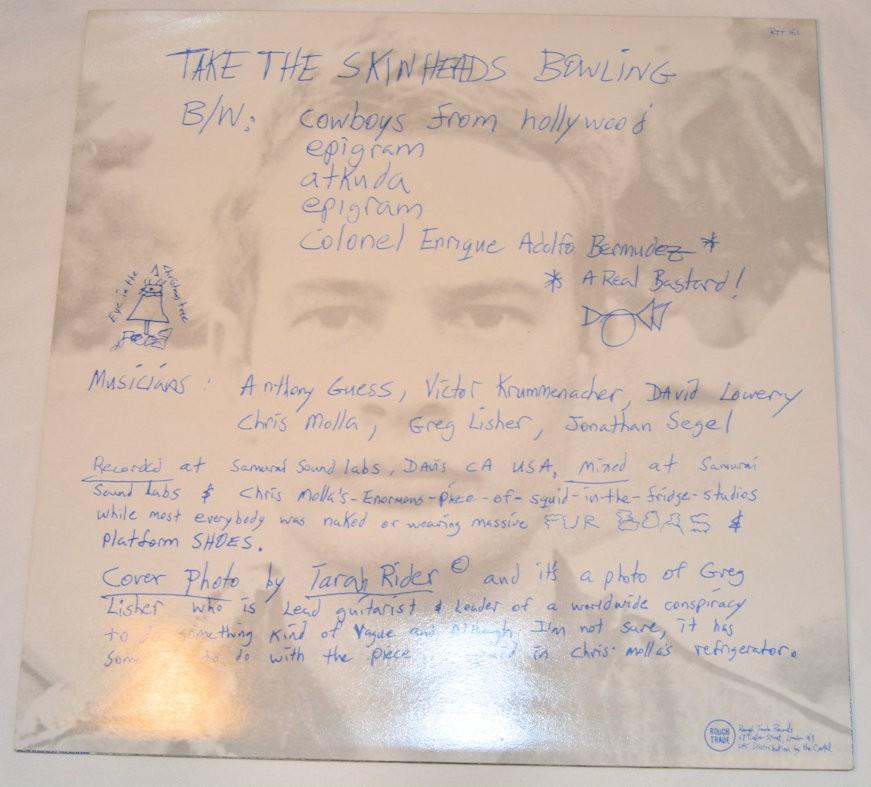 RTT 161
TAKE THE SKINHEADS BOWLING
B/W: cowboys from hollywood
epigram
atkuda
epigram
Colonel Enrique Adolfo Bermudez *
* A Real Bastard!
Eye in the Christmas tree
Musicians: Anthony Guess, Victor Krummenacher, DAVID Lowery
Chris Molla, Greg Lisher, Jonathan Segel
Recorded at Samurai Sound labs, DAVIS CA USA, mixed at Samurai
Sound Labs & Chris Molla's-Enormous-piece-of-squid-in-the-fridge-studios
while most everybody was naked or wearing massive FUR BOAS &
platform SHOES.
Cover Photo by Tarah Rider © and it's a photo of Greg
Lisher who is Lead guitarist & Leader of a worldwide conspiracy
to do something kind of Vague and Although, I'm not sure, it has
to do with the piece in Chris molla's refrigerator.
ROUGH TRADE
Rough Trade Records
Street, London N1
UK Distribution by the Cartel